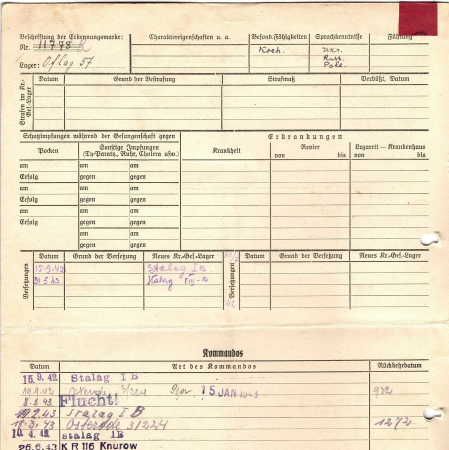 Beschriftung der Erkennungsmarke: Charaktereigenschaften u. a. Besond. Fähigkeiten Sprachkenntnisse Führung
Nr. 11778 Koch. Ukr.
Russ.
Lager: Oflag 57 Poln.
Strafen im Kr.-Gef.-Lager Datum Grund der Bestrafung Strafmaß Verbüßt, Datum
Schutzimpfungen während der Gefangenschaft gegen Erkrankungen
Pocken Sonstige Impfungen (Ty-Paraty, Ruhr, Cholera usw.) Krankheit Revier von bis Lazarett — Krankenhaus von bis
am am am
Erfolg gegen gegen
am am am
Erfolg gegen gegen
am am am
Erfolg gegen gegen
am am
gegen gegen
Versetzungen Datum Grund der Versetzung Neues Kr.-Gef.-Lager Versetzungen Datum Grund der Versetzung Neues Kr.-Gef.-Lager
15.9.42 Stalag I B
31.5.43 Stalag VIII-B
Kommandos
Datum Art des Kommandos Rückkehrdatum
15.9.42 Stalag I B
Osterode 15 JAN 1943 932
8.2.43 Flucht!
19.2.43 Stalag I B
18.3.43 Osterode 31224 1272
10.4.43 Stalag IB
26.6.43 K R 116 Knurow